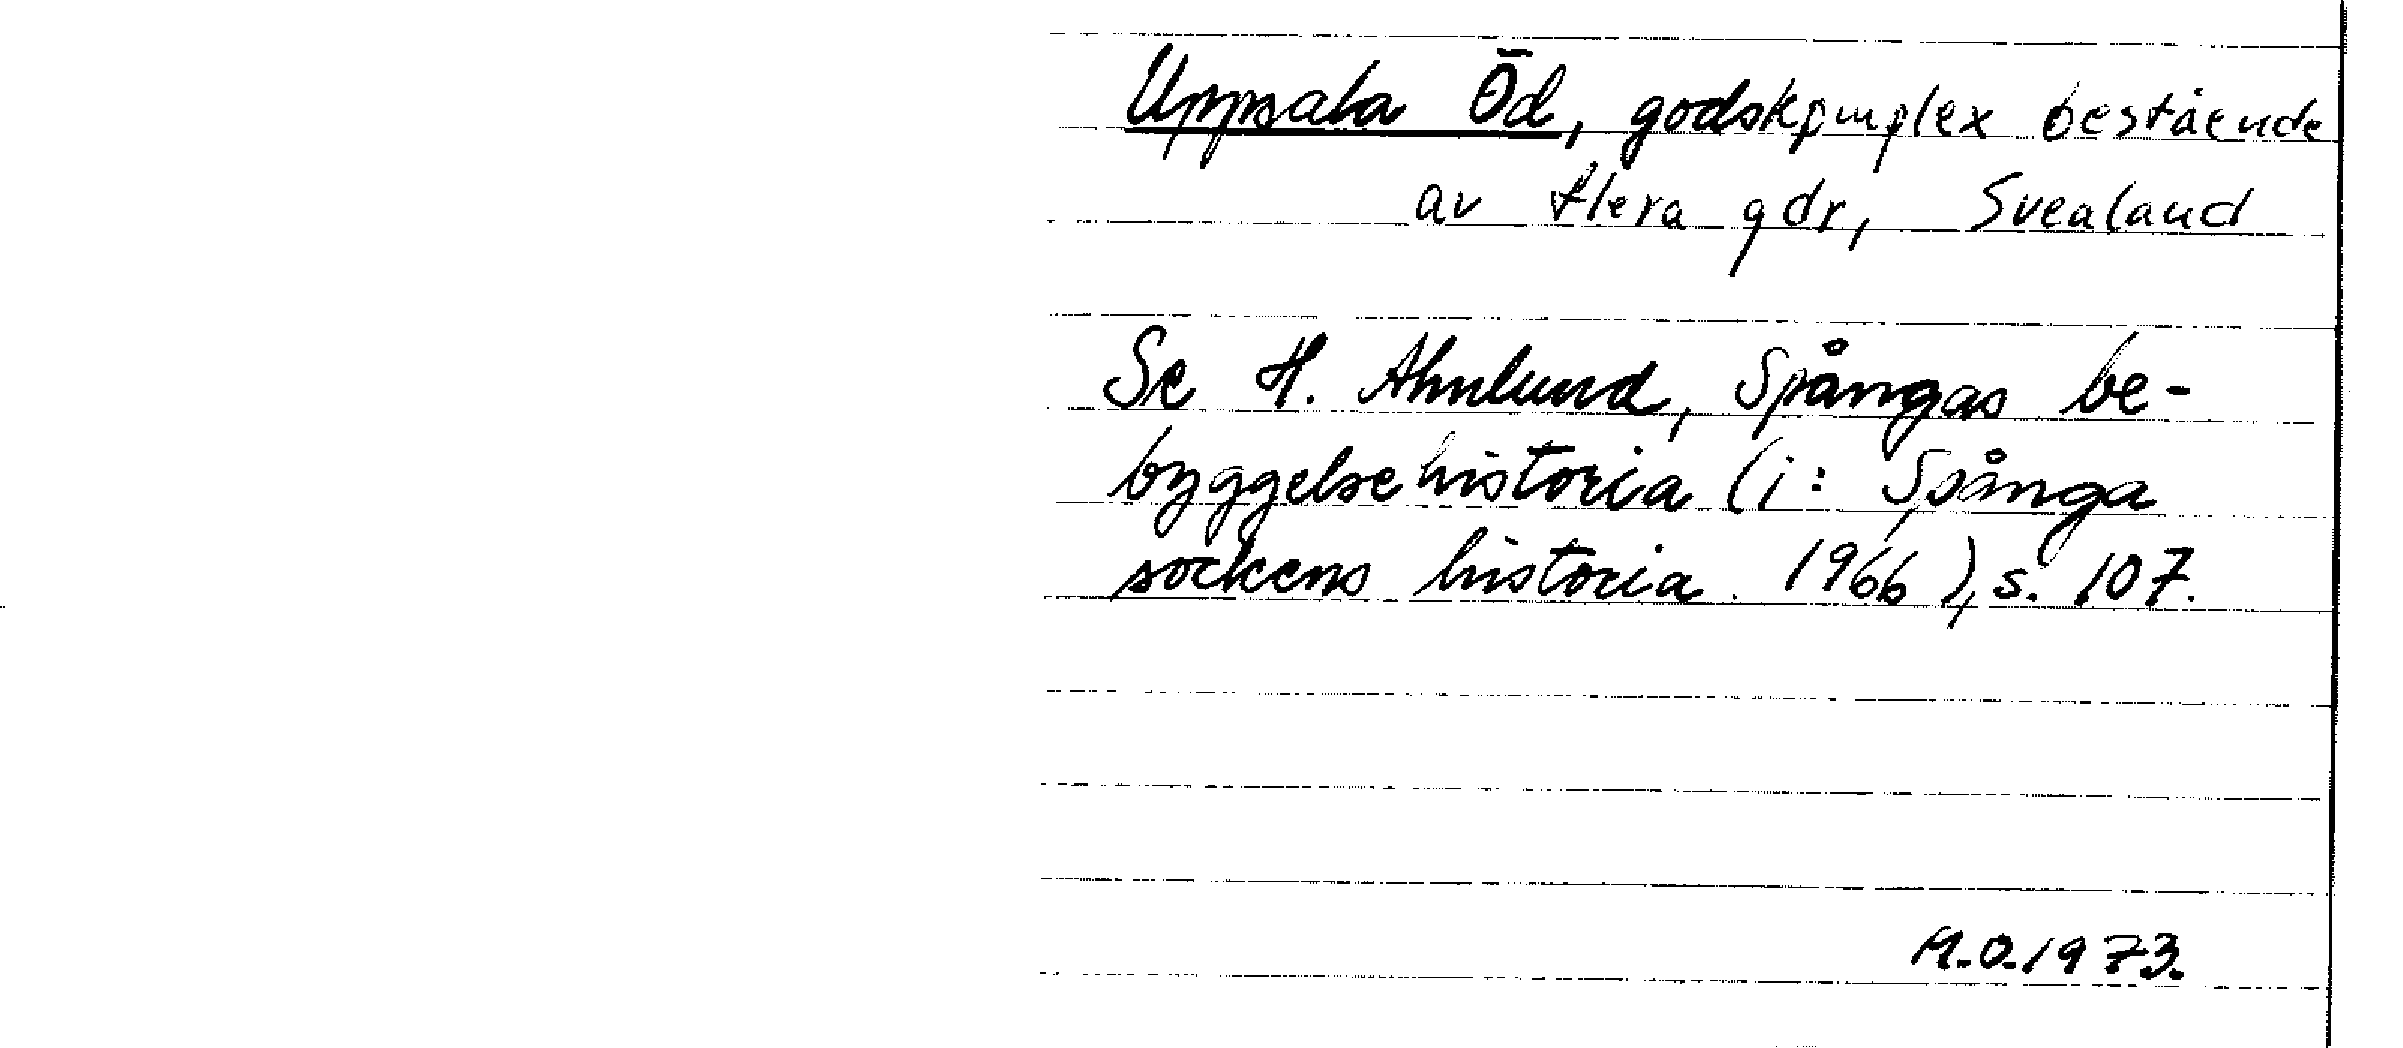 Uppsala Öd, godskomplex bestående
av flera gdr, Svealand
Se H. Ahnlund, Spångas be-
byggelsehistoria (i: Spånga
sockens historia 1966), s. 107.
M.O.1973.